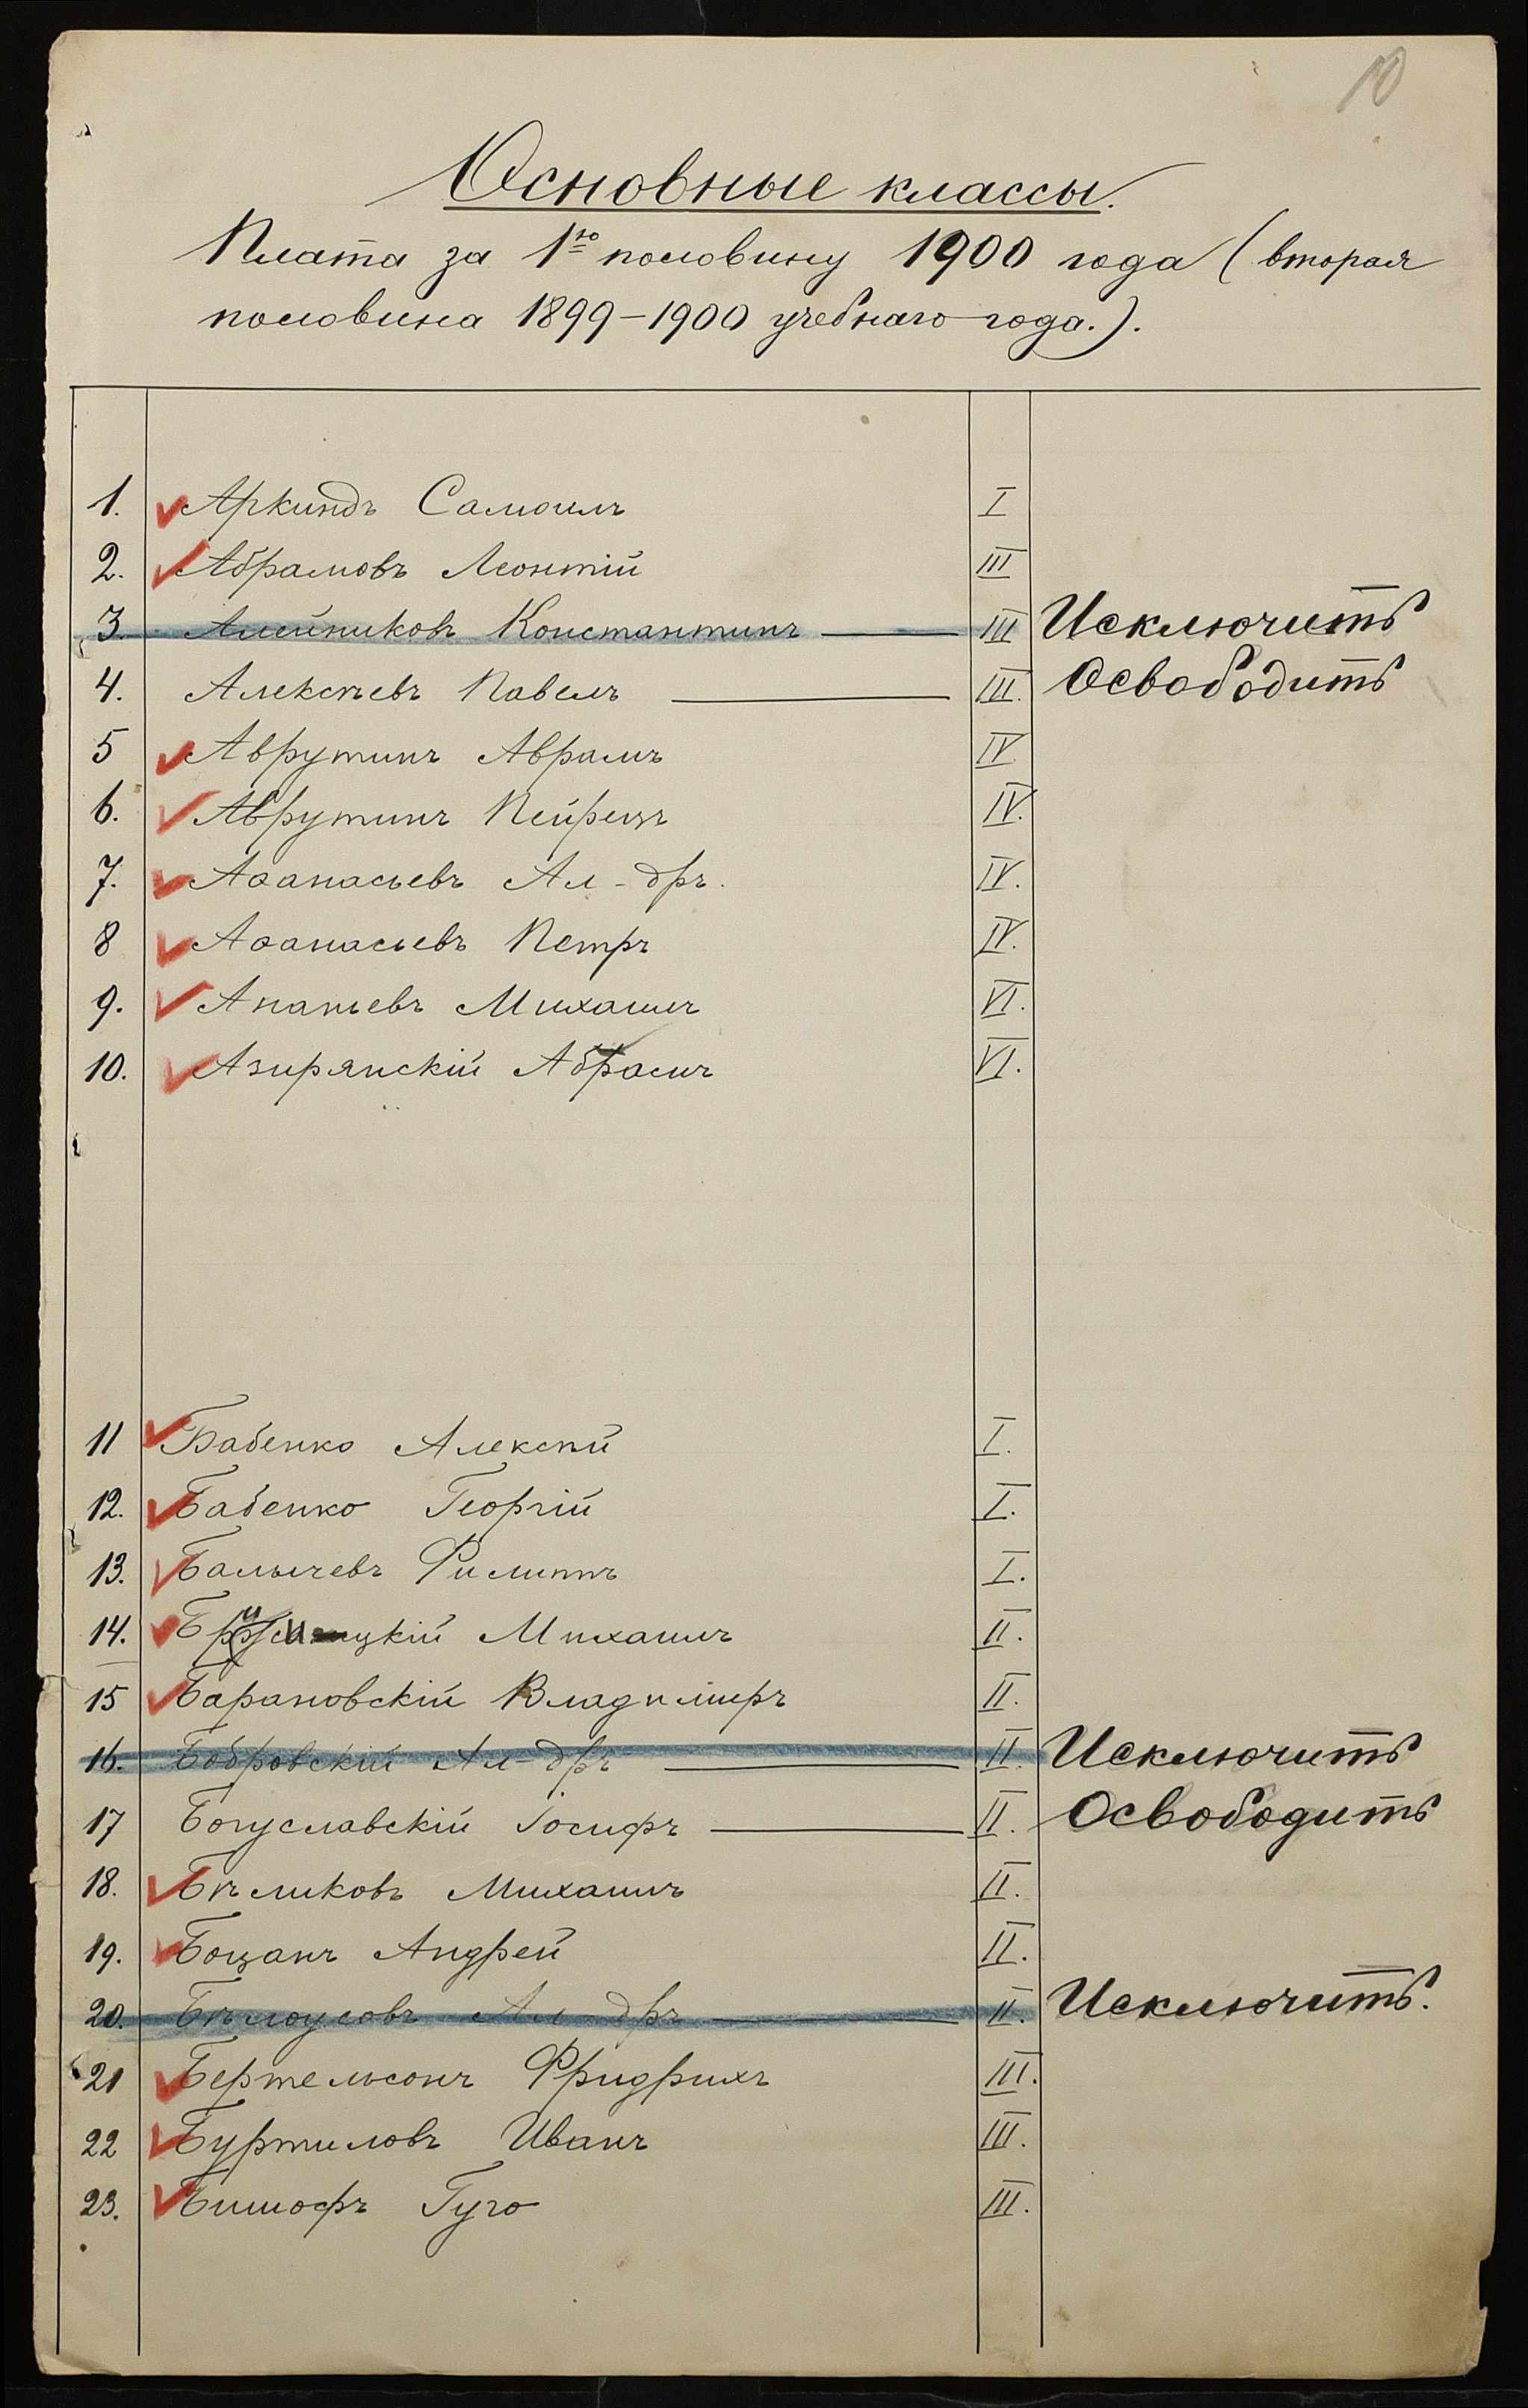 10
Основные классы.
Плата за 1ю половину 1900 года (вторая
половина 1899–1900 учебнаго года.).
1. Аркиндъ Самоилъ I
2. Абрамовъ Леонтій III
3. Алейниковъ Константинъ — III Исключить
4. Алексѣевъ Павелъ — III. Освободить
5 Аврутинъ Аврамъ IV.
6. Аврутинъ Пейрецъ IV.
7. Аѳанасьевъ Ал-дръ. IV.
8 Аѳанасьевъ Петръ IV.
9. Ананьевъ Михаилъ VI.
10. Азирянскій Абрамъ VI.
11 Бабенко Алексѣй I.
12. Бабенко Георгій I.
13. Балычевъ Филиппъ I.
14. Михаилъ II.
15 Барановскій Владиміръ II.
16. Бобровскій Ал-дръ — II. Исключить
17 Богуславскій Іосифъ — II. Освободить
18. Бѣликовъ Михаилъ II.
19. Боцанъ Андрей II.
20. Бѣлоусовъ Ал-дръ — II. Исключить.
21 Бертельсонъ Фридрихъ III.
22 Буртиловъ Иванъ III.
23. Бишофъ Гуго III.